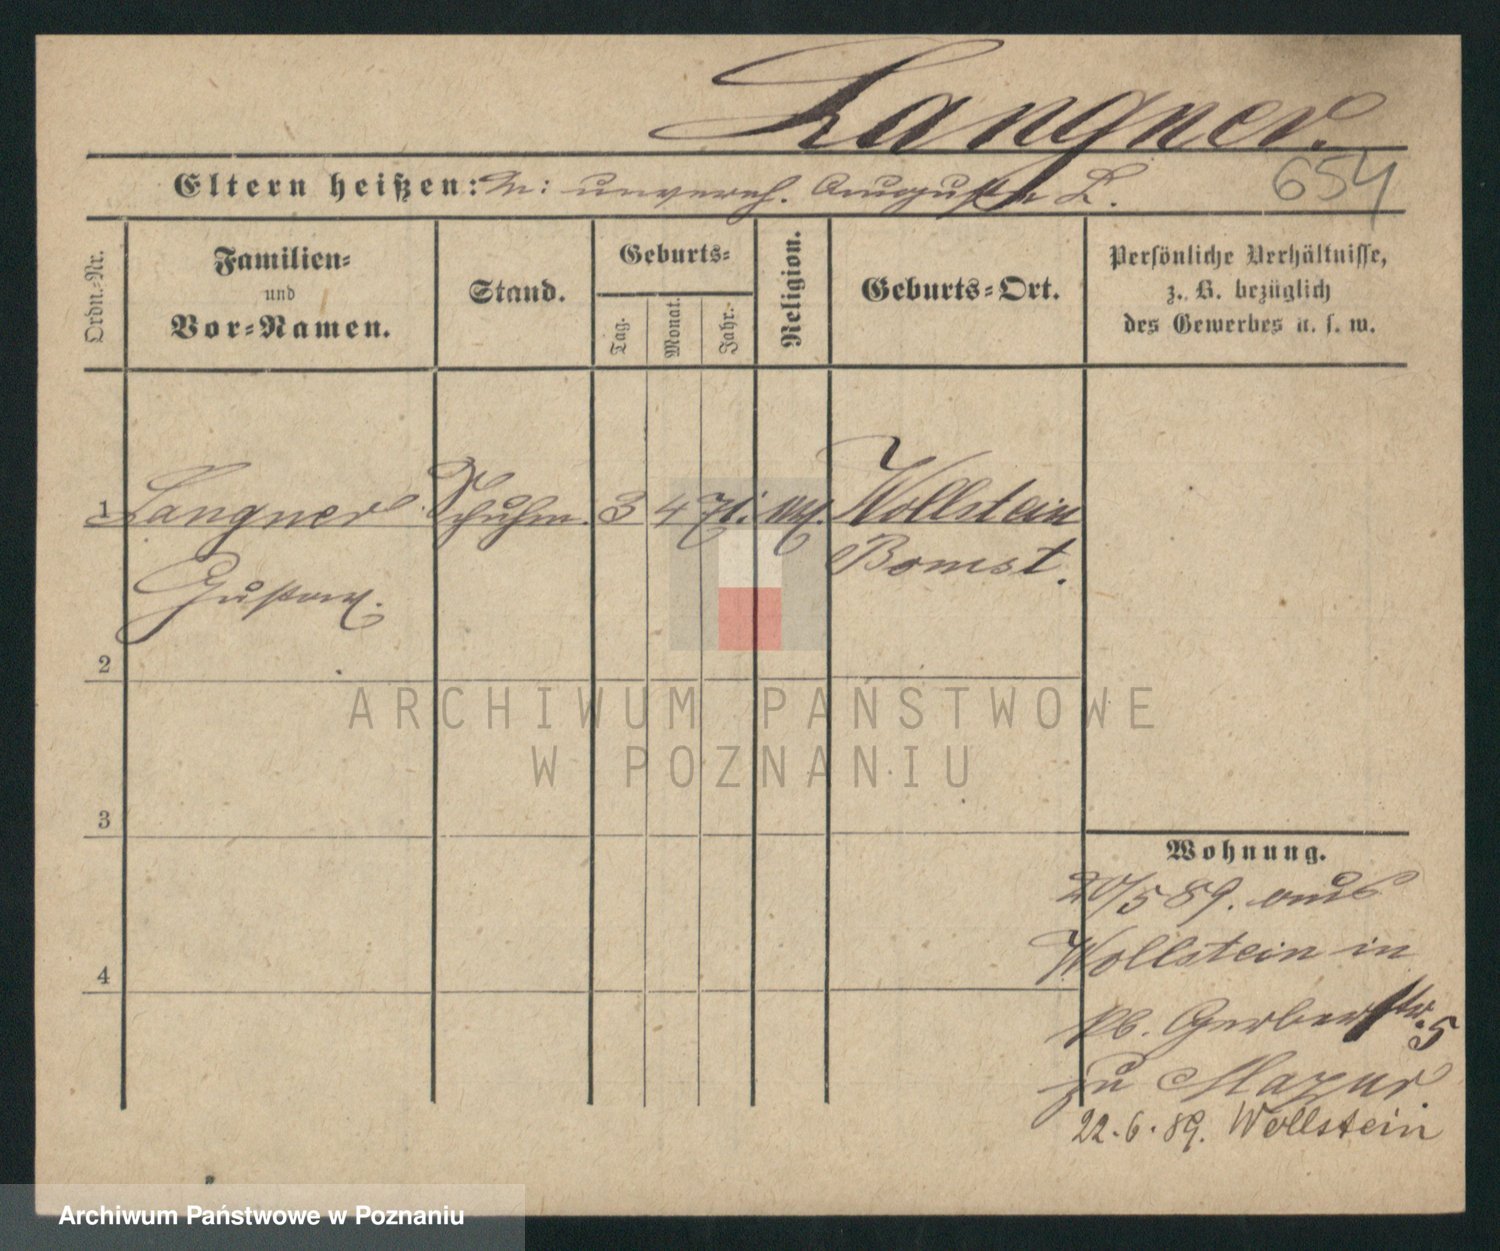 Langner.
654
Eltern heißen: M: unverh. Auguste L.
Ordn.-Nr.
Familien-
und
Vor-Namen.
Stand.
Geburts-
Tag.
Monat.
Jahr.-
Religion.
Geburts-Ort.
Persönliche Verhältnisse,
z. B. bezüglich
des Gewerbes u. s. w.
1 Langner Schuhm. 3 4 71. Wollstein
Gustav. Bomst.
2
3
4
Wohnung.
20/5 89. aus
Wollstein in
Gerberstr. 5
zu Mazur.
22.6.89. Wollstein
ARCHIWUM PAŃSTWOWE
W POZNANIU
Archiwum Państwowe w Poznaniu